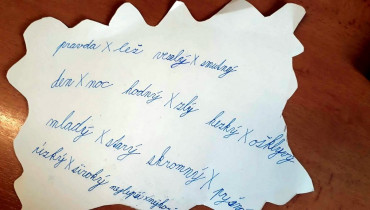 pravda X lež veselý X smutný
den X noc hodný X zlý hezký X ošklivý
mladý X starý skromný X
úzký X široký nejlepší